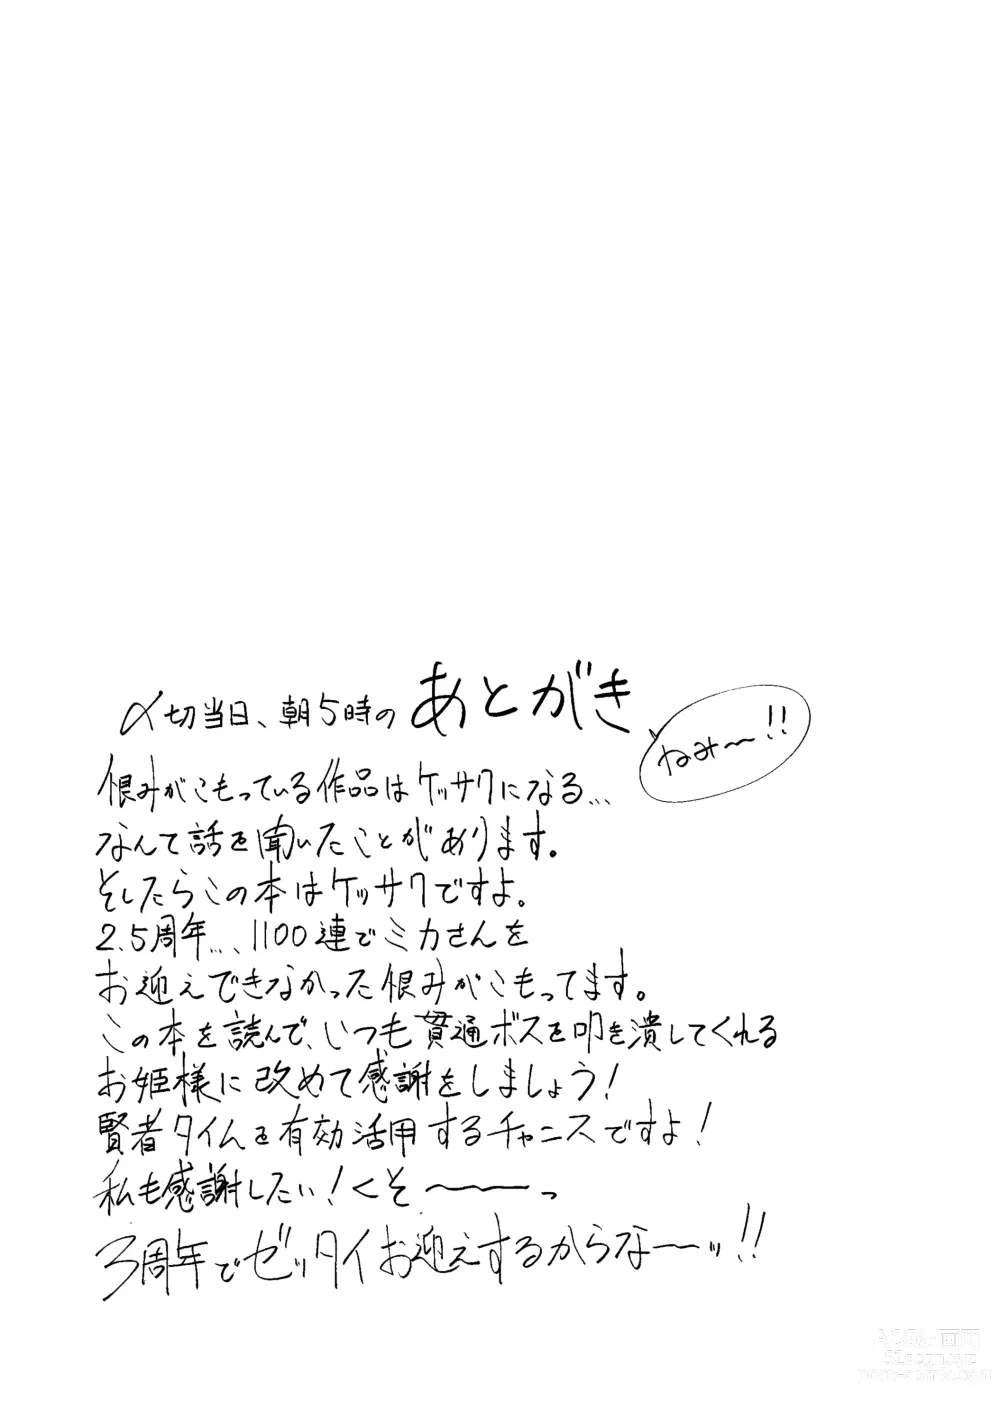 〆切当日、朝5時の あとがき
ねみ〜!!
恨みがこもっている作品はケッサクになる...
なんて話を聞いたことがあります。
そしたらこの本はケッサクですよ。
2.5周年...、1100連でミカさんを
お迎えできなかった恨みがこもってます。
この本を読んで、いつも貫通ボスを叩き潰してくれる
お姫様に改めて感謝をしましょう!
賢者タイムを有効活用するチャンスですよ!
私も感謝したい!くそ〜〜〜っ
3周年でゼッタイお迎えするからな〜ッ!!